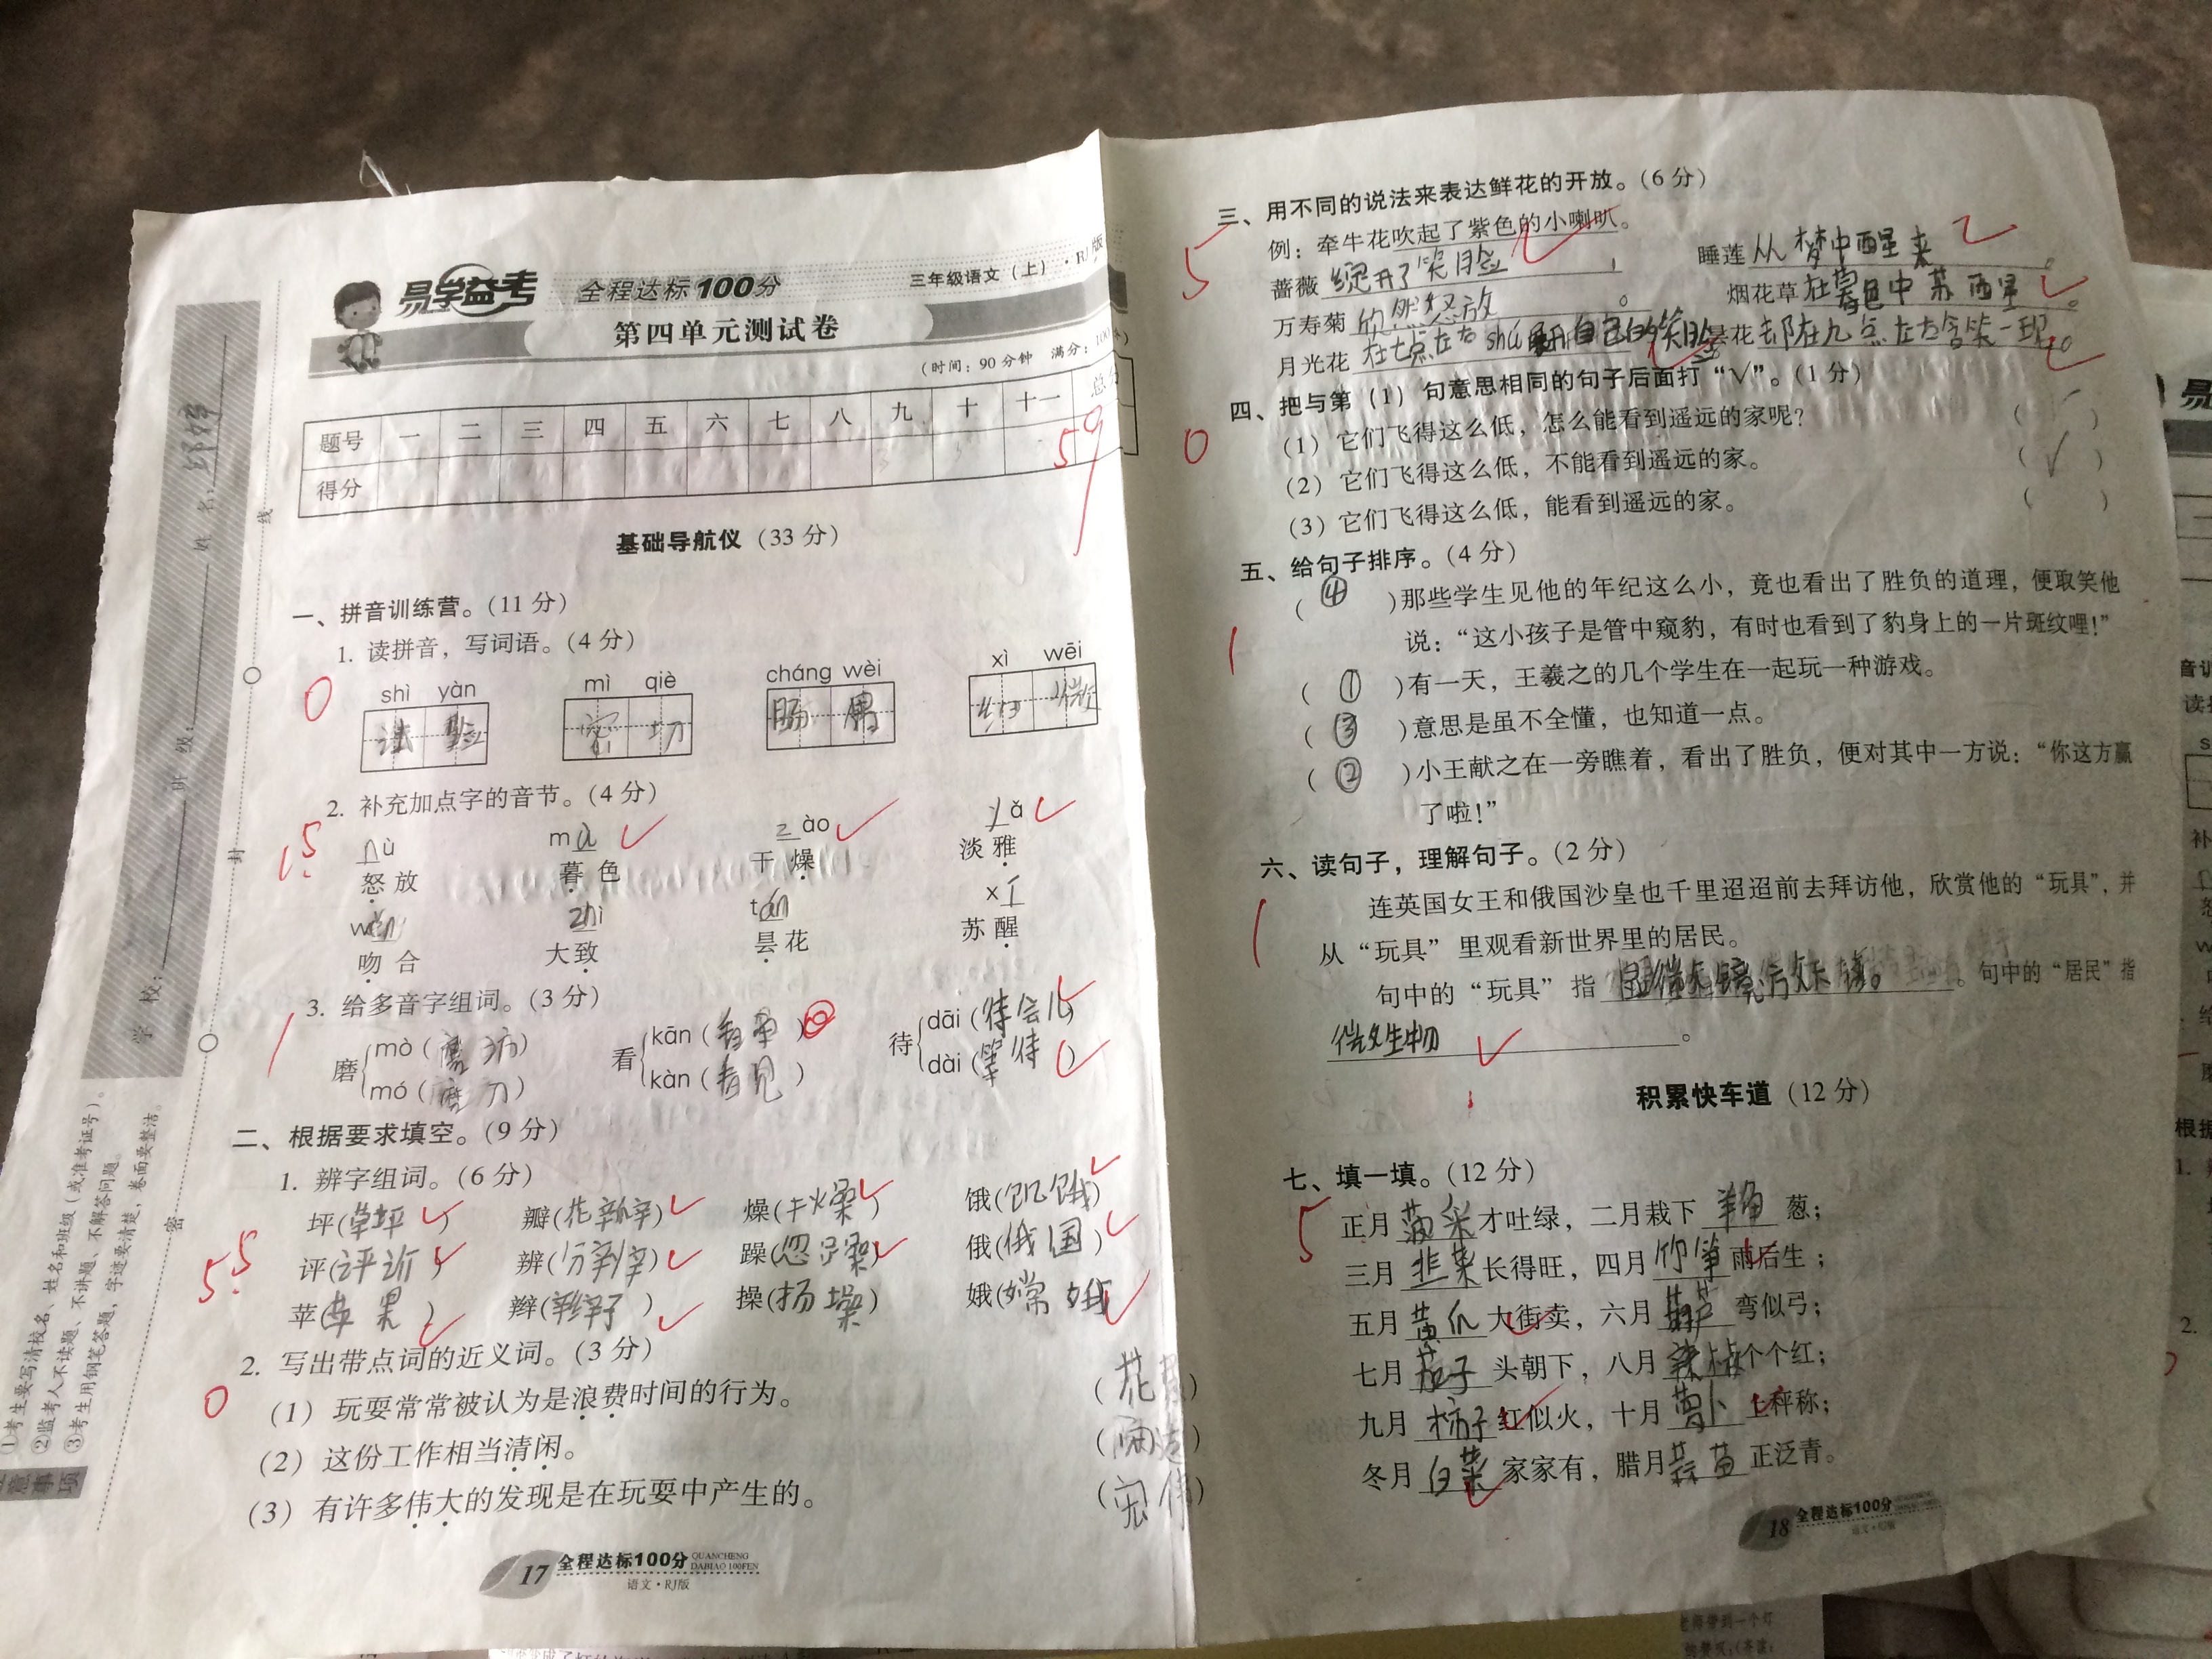 易学益考 全程达标100分 三年级语文（上）·RJ版
第四单元测试卷
（时间：90分钟 满分：100分）
题号 一 二 三 四 五 六 七 八 九 十 十一 总分
得分 59
学校： 班级： 姓名：
密 封 线
①考生要写清校名、姓名和班级（或准考证号）。
②监考人不读题、不讲题、不解答问题。
③考生用钢笔答题，字迹要清楚，卷面要整洁。
基础导航仪（33分）
一、拼音训练营。（11分）
1. 读拼音，写词语。（4分）
0
shì yàn mì qiè cháng wèi xì wēi
密切 肠胃 细
2. 补充加点字的音节。（4分）
nù mù zào yǎ
怒放 暮色 干燥 淡雅
wěn zhì tán x
吻合 大致 昙花 苏醒
3. 给多音字组词。（3分）
1
磨 mò（磨坊） 看 kān（看 ） 待 dāi（待会儿）
mó（磨刀） kàn（看见） dài（等待）
二、根据要求填空。（9分）
1. 辨字组词。（6分）
5.5
坪(草坪) 瓣(花瓣) 燥(干燥) 饿(饥饿)
评(评价) 辨(分辨) 躁( ) 俄(俄国)
苹(苹果) 辫(辫子) 操( ) 娥(嫦娥)
2. 写出带点词的近义词。（3分）
0
（1）玩耍常常被认为是浪费时间的行为。（花 ）
（2）这份工作相当清闲。
（3）有许多伟大的发现是在玩耍中产生的。（宏伟）
17 全程达标100分 QUANCHENG DABIAO 100FEN
语文·RJ版
三、用不同的说法来表达鲜花的开放。（6分）
5
例：牵牛花吹起了紫色的小喇叭。
蔷薇 绽开了笑脸 睡莲 从梦中醒来
万寿菊 欣然怒放 。 烟花草 在暮色中苏醒 。
月光花 在七点左右shū展开自己的笑脸 昙花 却在九点左右含笑一现
四、把与第（1）句意思相同的句子后面打“√”。（1分）
0
（1）它们飞得这么低，怎么能看到遥远的家呢？
（2）它们飞得这么低，不能看到遥远的家。（√）
（3）它们飞得这么低，能看到遥远的家。（ ）
五、给句子排序。（4分）
1
（④）那些学生见他的年纪这么小，竟也看出了胜负的道理，便取笑他
说：“这小孩子是管中窥豹，有时也看到了豹身上的一片斑纹哩！”
（①）有一天，王羲之的几个学生在一起玩一种游戏。
（③）意思是虽不全懂，也知道一点。
（②）小王献之在一旁瞧着，看出了胜负，便对其中一方说：“你这方赢
了啦！”
六、读句子，理解句子。（2分）
1
连英国女王和俄国沙皇也千里迢迢前去拜访他，欣赏他的“玩具”，并
从“玩具”里观看新世界里的居民。
句中的“玩具”指 。句中的“居民”指
微生物 。
积累快车道（12分）
七、填一填。（12分）
5
正月 菠菜 才吐绿，二月栽下 羊角 葱；
三月 韭菜 长得旺，四月 雨后生；
五月 黄瓜 大街卖，六月 弯似弓；
七月 茄子 头朝下，八月 辣椒 个个红；
九月 柿子 红似火，十月 萝卜 上秤称；
冬月 白菜 家家有，腊月 蒜苗 正泛青。
18 全程达标100分
语文·RJ版